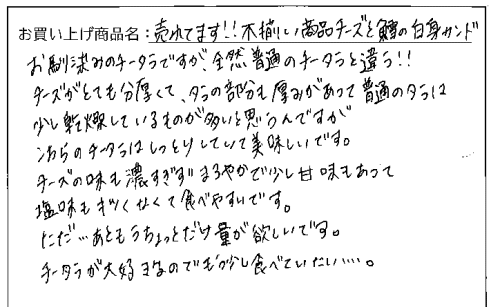 お買い上げ商品名：売れてます!!不揃い商品チーズと鱈の白身サンド
お馴染みのチータラですが、全然普通のチータラと違う!!
チーズがとても分厚くて、タラの部分も厚みがあって普通のタラは
少し乾燥しているものが多いと思うんですが
こちらのチータラはしっとりしていて美味しいです。
チーズの味も濃すぎずまろやかで少し甘味もあって
塩味もキツくなくて食べやすいです。
ただ…あともうちょっとだけ量が欲しいです。
チータラが大好きなのでもう少し食べていたい…。